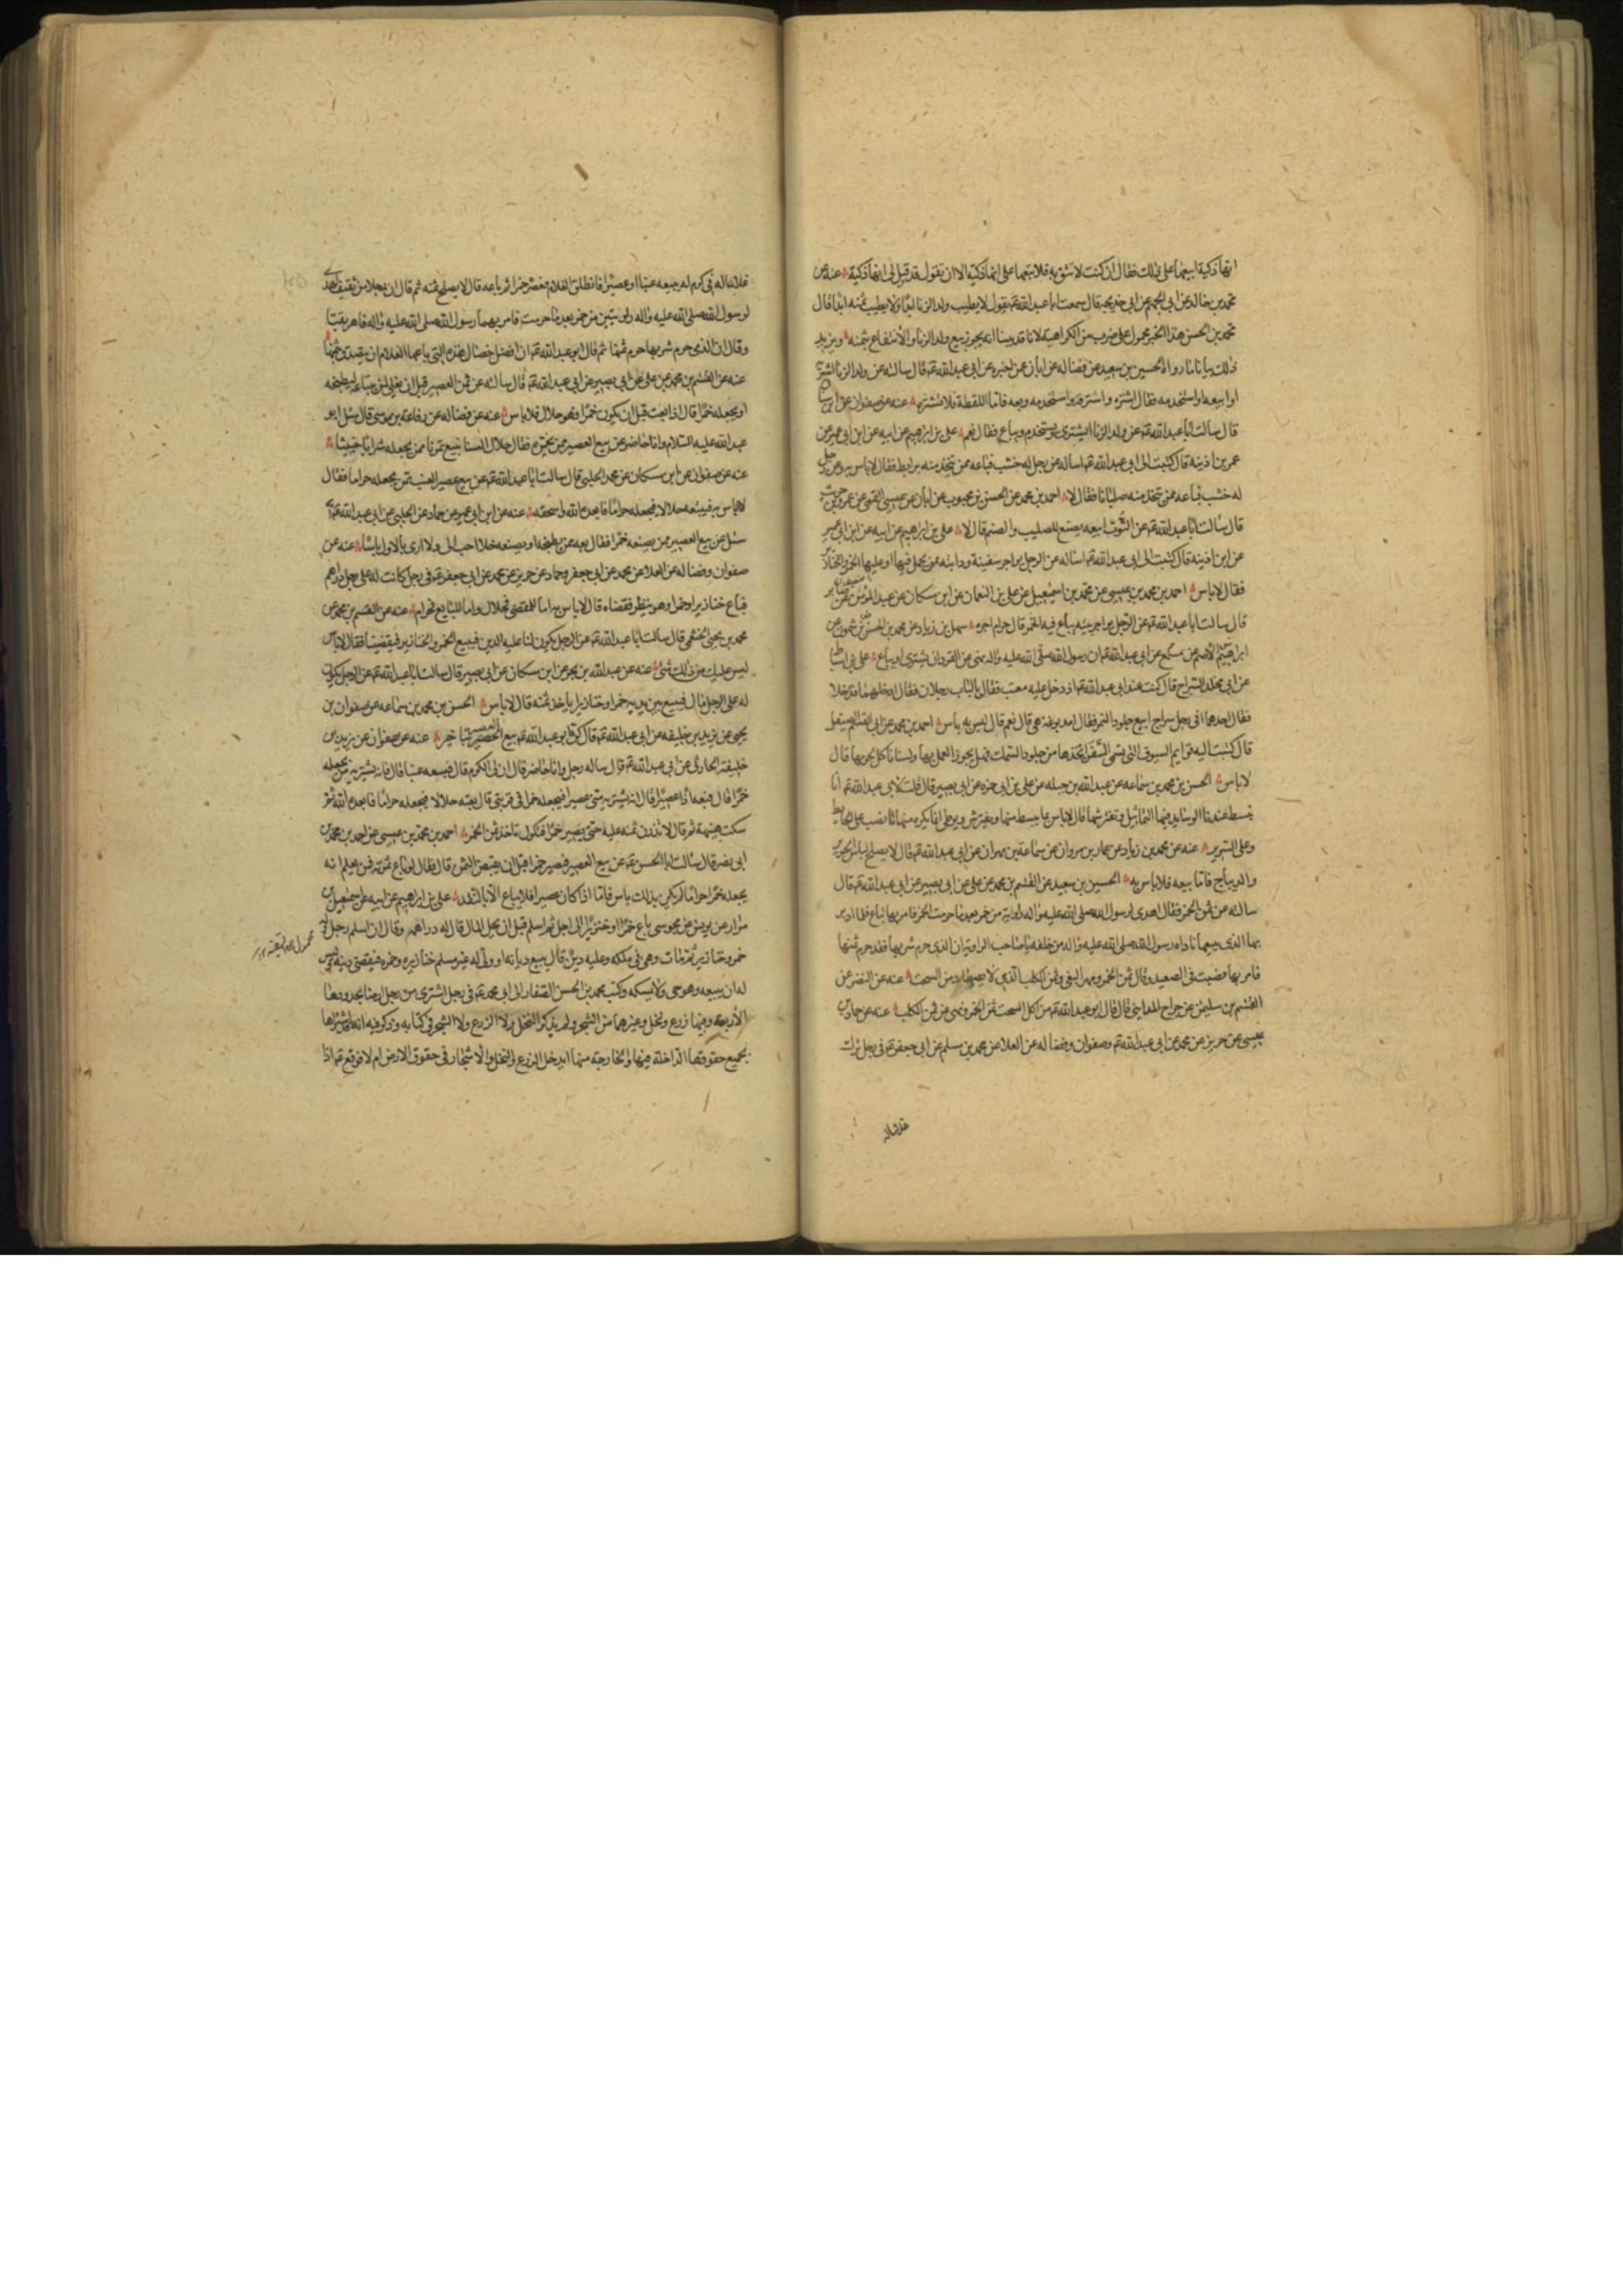 انها ذكية ابيعها على ذلك فقال ان كنت لا تثق به فلا تبعها على انها ذكية الا ان تقول قد قيل لى انها ذكية عنه عن
محمد بن خالد عن ابى الجهم عن ابى خديجة قال سمعت ابا عبد الله ع يقول لا يطيب ولد الزنا ابدا ولا يطيب ثمنه ابدا قال
محمد بن الحسن هذا الخبر محمول على ضرب من الكراهية لانا قد بينا انه يجوز بيع ولد الزنا والانتفاع بثمنه ويزيد
ذلك بيانا ما رواه الحسين بن سعيد عن فضاله عن ابان عن اخبره عن ابى عبد الله ع قال سالته عن ولد الزنا اشتريه
او ابيعه او استخدمه فقال اشتره واسترقه واستخدمه وبعه فاما اللقطة فلا تشتره عنه عن صفوان عن ابن سنان
قال سالت ابا عبد الله ع عن ولد الزنا ايشترى يستخدم ويباع فقال نعم على بن ابراهيم عن ابيه عن ابن ابى عمير عن
عمر بن اذينة قال كتبت الى ابى عبد الله ع اساله عن رجل له خشب فباعه ممن يتخذ منه برابط فقال لا باس به وعن رجل
له خشب فباعه ممن يتخذ منه صلبانا فقال لا احمد بن محمد عن الحسن بن محبوب عن ابان عن عيسى القمى عن عمرو بن حريث
قال سالت ابا عبد الله ع عن التوت ابيعه يصنع للصليب والصنم قال لا على بن ابراهيم عن ابيه عن ابن ابى عمير
عن ابن اذينه قال كتبت الى ابى عبد الله ع اساله عن الرجل يواجر سفينة ودابته ممن يحمل فيها او عليها الخمر والخنازير
فقال لا باس احمد بن محمد بن عيسى عن محمد بن اسمعيل عن على بن النعمان عن ابن مسكان عن عبد المؤمن عن صابر
قال سالت ابا عبد الله ع عن الرجل يواجر بيته يباع فيه الخمر قال حرام اجره سهل بن زياد عن محمد بن الحسن بن شمون عن
الاصم عن مسمع عن ابى عبد الله ع ان رسول الله صلى الله عليه واله نهى عن القرد ان يشترى او يباع على بن اسباط
عن ابى مخلد السراج قال كنت عند ابى عبد الله ع اذ دخل عليه معتب فقال بالباب رجلان فقال ادخلهما فدخلا
فقال احدهما انى رجل سراج ابيع جلود النمر فقال امدبوغة هى قال نعم قال ليس به باس احمد بن محمد عن ابى القسم الصيقل
قال كتبت اليه قوايم السيوف التى تسمى السفن اتخذها من جلود السمك فهل يجوز العمل بها ولسنا ناكل لحومها قال
لا باس الحسن بن محمد بن سماعه عن عبد الله بن جبله عن على بن ابى حمزه عن ابى بصير قال قلت لابى عبد الله ع انا
نبسط عندنا الوسايد فيها التماثيل ونفترشها قال لا باس بما يبسط منها ويفترش ويوطى انما يكره منها ما نصب على الحايط
وعلى السرير عنه عن محمد بن زياد عن عمار بن مروان عن سماعة بن مهران عن ابى عبد الله ع قال لا يصلح لباس الحرير
والديباج فاما بيعه فلا باس به الحسين بن سعيد عن القسم بن محمد عن على عن ابى بصير عن ابى عبد الله ع قال
سالته عن ثمن الخمر فقال اهدى لرسول الله صلى الله عليه واله راوية من خمر بعد ما حرمت الخمر فامر بها تباع فلما ادبر
بها الذى يبيعها ناداه رسول الله صلى الله عليه واله من خلفه يا صاحب الراوية ان الذى حرم شربها فقد حرم ثمنها
فامر بها فصبت فى الصعيد وقال ثمن الخمر ومهر البغى وثمن الكلب الذى لا يصطاد من السحت عنه عن النضر عن
القسم بن سليمن عن جراح المداينى قال قال ابو عبد الله ع من اكل السحت ثمن الخمر ونهى عن ثمن الكلب عنه عن حماد بن
عيسى عن حريز عن محمد عن ابى عبد الله ع وصفوان وفضاله عن العلا عن محمد بن مسلم عن ابى جعفر ع فى رجل ترك
غلاما له فى كرم له يبيعه عنبا او عصيرا فانطلق الغلام فعصر خمرا ثم باعه قال لا يصلح ثمنه ثم قال ان رجلا من ثقيف اهدى
لرسول الله صلى الله عليه واله راويتين من خمر بعد ما حرمت فامر بهما رسول الله صلى الله عليه واله فاهريقتا
وقال ان الذى حرم شربها حرم ثمنها ثم قال ابو عبد الله ع ان افضل خصال هذه التى باعها الغلام ان يتصدق بثمنها
عنه عن القسم بن محمد عن على عن ابى بصير عن ابى عبد الله ع قال سالته عن ثمن العصير قبل ان يغلى لمن يبتاعه ليطبخه
او يجعله خمرا قال اذا بعته قبل ان يكون خمرا وهو حلال فلا باس عنه عن فضاله عن رفاعة بن موسى قال سئل ابو
عبد الله عليه السلام وانا حاضر عن بيع العصير ممن يخمره فقال حلال السنا نبيع تمرنا ممن يجعله شرابا خبيثا
عنه عن صفوان عن ابن مسكان عن محمد الحلبى قال سالت ابا عبد الله ع عن بيع عصير العنب ممن يجعله حراما فقال
لا باس به تبيعه حلالا فيجعله حراما فابعده الله واسحقه عنه عن ابن ابى عمير عن حماد عن الحلبى عن ابى عبد الله ع انه
سئل عن بيع العصير ممن يصنعه خمرا فقال بعه ممن يطبخه او يصنعه خلا احب الى ولا ارى بالاول باسا عنه عن
صفوان وفضاله عن العلا عن محمد عن ابى جعفر وحماد عن حريز عن محمد عن ابى جعفر ع فى رجل كانت له على رجل دراهم
فباع خنازير او خمرا وهو ينظر فقضاه قال لا باس به اما للمقضى فحلال واما للبايع فحرام عنه عن القسم بن محمد عن
محمد بن يحيى الخثعمى قال سالت ابا عبد الله ع عن الرجل يكون لنا عليه الدين فيبيع الخمر والخنازير فيقضينا فقال لا باس
ليس عليك من ذلك شئ عنه عن عبد الله بن بحر عن ابن مسكان عن ابى بصير قال سالت ابا عبد الله ع عن الرجل يكون
له على الرجل مال فيبيع بين يديه خمرا وخنازير ياخذ ثمنه قال لا باس الحسن بن محمد بن سماعه عن صفوان بن
يحيى عن يزيد بن خليفه عن ابى عبد الله ع قال كره ابو عبد الله ع بيع العصير بتاخير عنه عن صفوان عن يزيد بن
خليفة الحارثى عن ابى عبد الله ع قال ساله رجل وانا حاضر قال ان لى الكرم قال تبيعه عنبا قال فانه يشتريه من يجعله
خمرا قال فبعه اذا عصيرا قال انه يشتريه منى عصيرا فيجعله خمرا فى قربتى قال بعته حلالا فجعله حراما فابعده الله ثم
سكت هنيهة ثم قال لا تذرن ثمنه عليه حتى يصير خمرا فتكون تاخذ ثمن الخمر احمد بن محمد بن عيسى عن احمد بن محمد بن
ابى نصر قال سالت ابا الحسن ع عن بيع العصير فيصير خمرا قبل ان يقبض الثمن قال فقال لو باع ثمرته ممن يعلم انه
يجعله خمرا حراما لم يكن بذلك باس فاما اذا كان عصيرا فلا يباع الا بالنقد على بن ابراهيم عن ابيه عن اسمعيل بن
مرار عن يونس عن مجوسى باع خمرا او خنزيرا الى اجل ثم اسلم قبل ان يحل المال قال له دراهمه وقال ان اسلم رجل وله
خمر وخنازير ثم مات وهى فى ملكه وعليه دين قال يبيع ديانه او ولى له غير مسلم خنازيره وخمره فيقضى دينه وليس
له ان يبيعه وهو حى ولا يمسكه وكتب محمد بن الحسن الصفار الى ابى محمد ع فى رجل اشترى من رجل ارضا بحدودها
الاربعة وفيها زرع ونخل وغيرهما من الشجر ولم يذكر النخل ولا الزرع ولا الشجر فى كتابه وذكر فيه انه قد اشتراها
بجميع حقوقها الداخلة فيها والخارجة منها ايدخل الزرع والنخل والاشجار فى حقوق الارض ام لا فوقع ع اذا